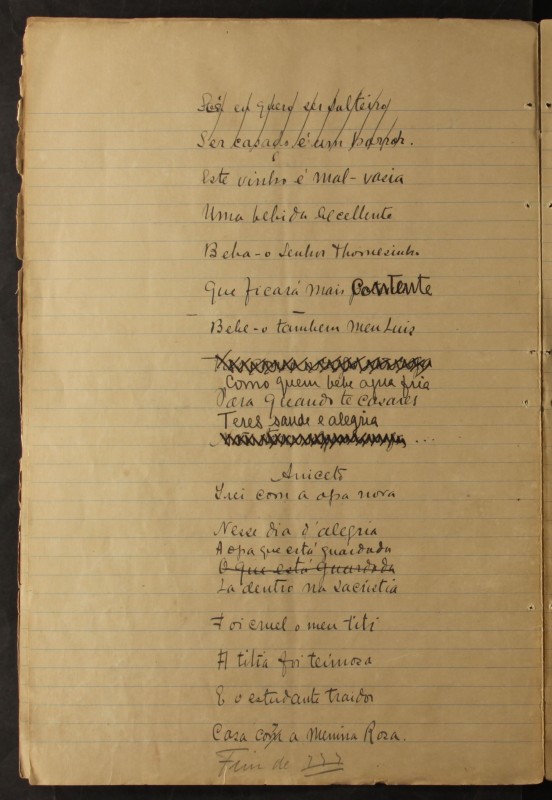 Só eu quero ser solteiro
Ser casado é um horror.
Este vinho é mal-vasia
Uma bebida excellente
Beba-o Senhor Thomesinho
Que ficará mais contente
Bebe-o tambem meu Luis
Como quem bebe agua fria
Para quando te casares
Teres saude e alegria
Aniceto
Irei com a opa nova
Nesse dia d'alegria
A opa que está guardada
O que está guardada
La dentro na sacristia
Foi cruel o meu titi
A titia foi teimosa
E o estudante traidor
Casa com a Menina Rosa.
Fim de